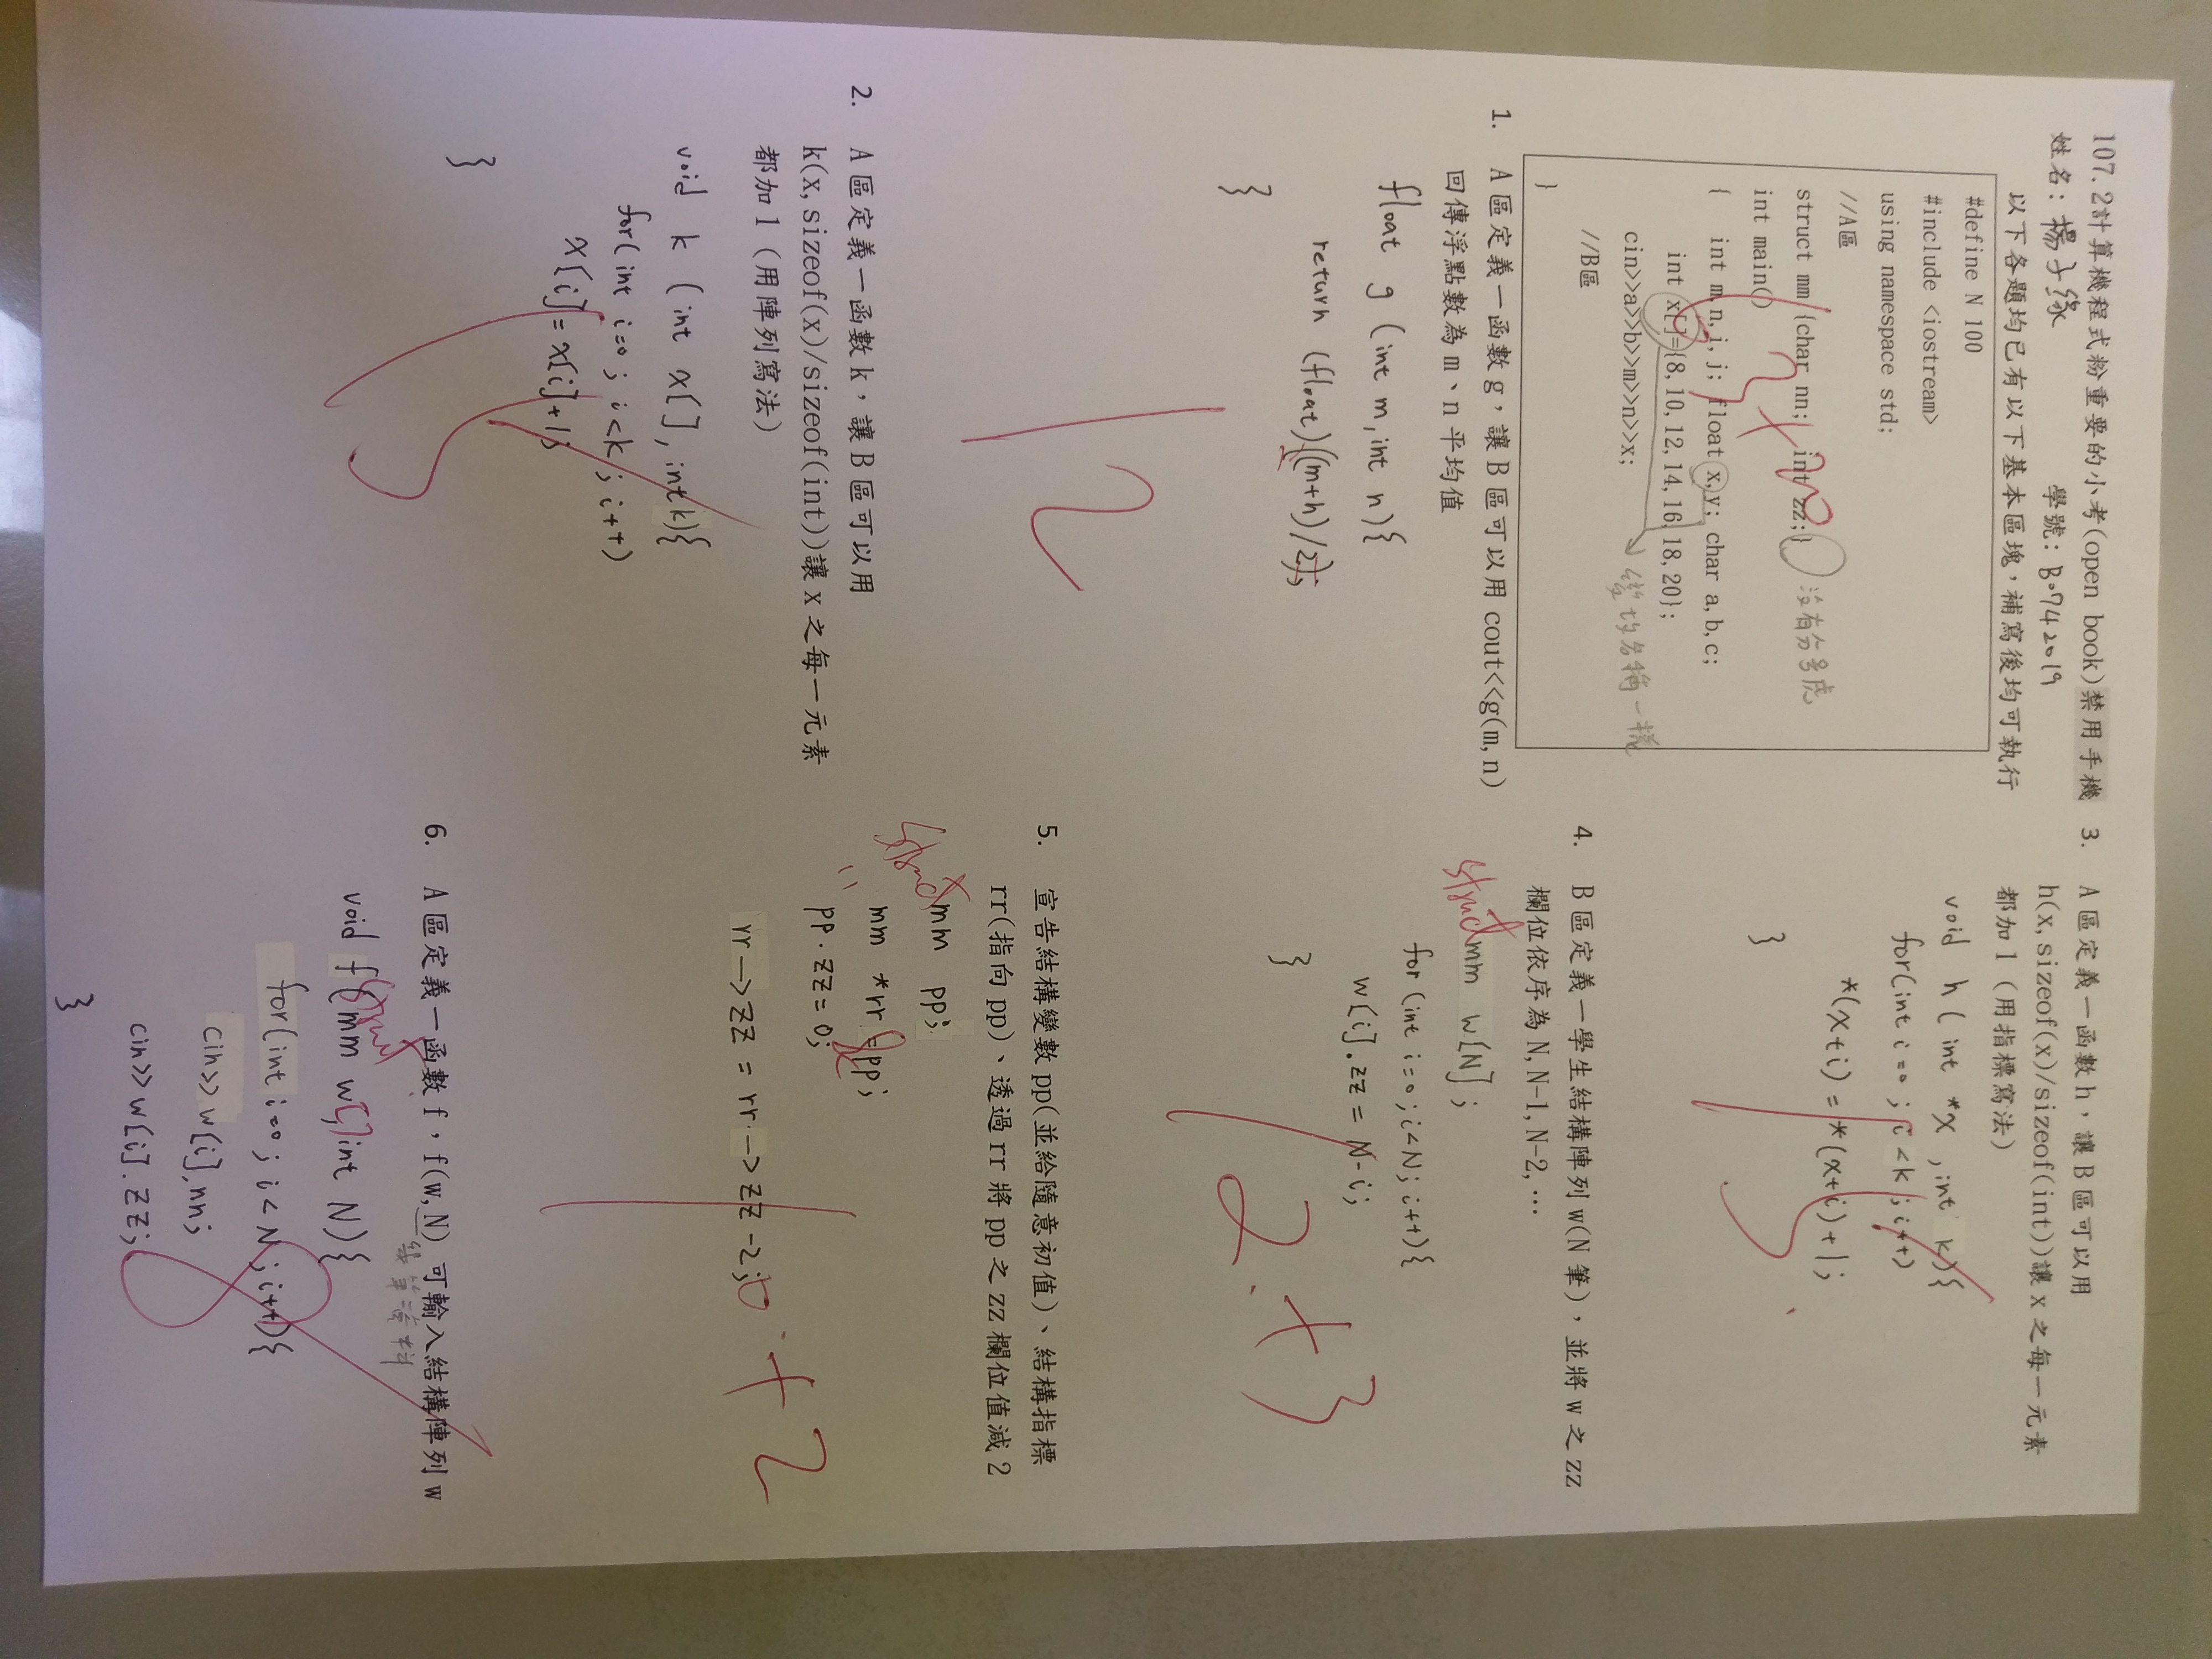 107.2計算機程式粉重要的小考(open book)禁用手機
姓名: 楊子緣 學號: B0742019
以下各題均已有以下基本區塊，補寫後均可執行
#define N 100
#include <iostream>
using namespace std;
//A區
struct mm {char nn; int zz;} 沒有分號
int main()
{ int m,n,i,j; float x,y; char a,b,c;
int x[]={8,10,12,14,16,18,20};
cin>>a>>b>>m>>n>>x; 名稱一樣
//B區
}
1. A區定義一函數g，讓B區可以用 cout<<g(m,n)
回傳浮點數為m、n平均值
float g (int m,int n){
return (float)((m+n)/2);
}
12
2. A區定義一函數k，讓B區可以用
k(x,sizeof(x)/sizeof(int))讓x之每一元素
都加1（用陣列寫法）
void k (int x[], int k){
for(int i=0; i<k; i++)
x[i]=x[i]+1;
}
15
3. A區定義一函數h，讓B區可以用
h(x,sizeof(x)/sizeof(int))讓x之每一元素
都加1（用指標寫法）
void h ( int *x ,int k){
for(int i=0; i<k; i++)
*(x+i) = *(x+i)+1;
}
15
4. B區定義一學生結構陣列w(N筆)，並將w之zz
欄位依序為N,N-1,N-2,…
struct mm w[N];
for (int i=0;i<N; i++){
w[i].zz = N-i;
}
12.+3
5. 宣告結構變數pp(並給隨意初值)、結構指標
rr(指向pp)、透過rr將pp之zz欄位值減2
struct mm pp;
mm *rr =&pp;
pp.zz=0;
rr->zz = rr->zz-2;
10+2
6. A區定義一函數f，f(w,N) 可輸入結構陣列w
筆資料
void f(struct mm w[],int N){
for(int i=0; i<N; i++){
cin>>w[i].nn;
cin>>w[i].zz;
}
8